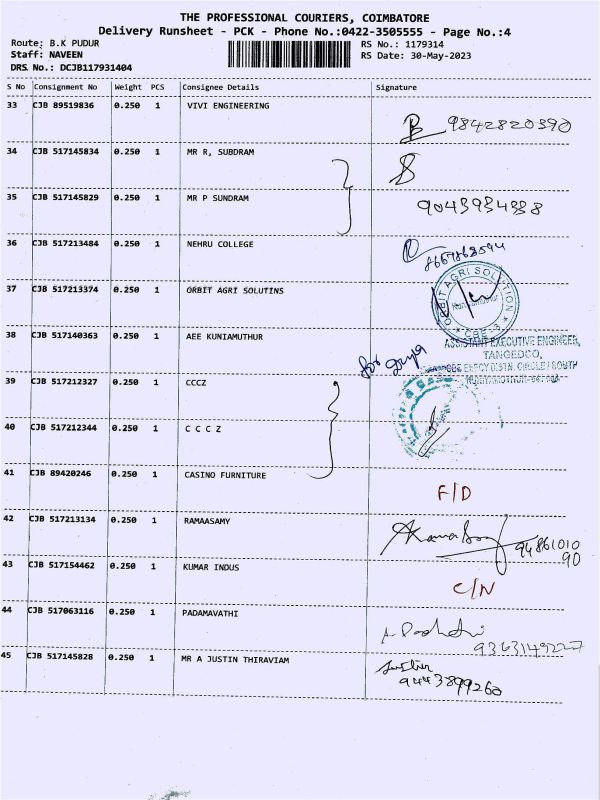 THE PROFESSIONAL COURIERS, COIMBATORE
Delivery Runsheet - PCK - Phone No.:0422-3505555 - Page No.:4
Route: B.K PUDUR RS No.: 1179314
Staff: NAVEEN RS Date: 30-May-2023
DRS No.: DCJB117931404
S No Consignment No Weight PCS Consignee Details Signature
33 CJB 89519836 0.250 1 VIVI ENGINEERING
9842820390
34 CJB 517145834 0.250 1 MR R, SUBDRAM
35 CJB 517145829 0.250 1 MR P SUNDRAM
9043934338
36 CJB 517213484 0.250 1 NEHRU COLLEGE
37 CJB 517213374 0.250 1 ORBIT AGRI SOLUTINS
ORBIT AGRI SOLUTION
CBE-3
38 CJB 517140363 0.250 1 AEE KUNIAMUTHUR
ASSISTANT EXECUTIVE ENGINEER,
TANGEDCO,
39 CJB 517212327 0.250 1 CCCZ
40 CJB 517212344 0.250 1 C C C Z
41 CJB 89420246 0.250 1 CASINO FURNITURE
F/D
42 CJB 517213134 0.250 1 RAMAASAMY
94861010
90
43 CJB 517154462 0.250 1 KUMAR INDUS
C/N
44 CJB 517063116 0.250 1 PADAMAVATHI
9363149227
45 CJB 517145828 0.250 1 MR A JUSTIN THIRAVIAM
Justin
9443899260